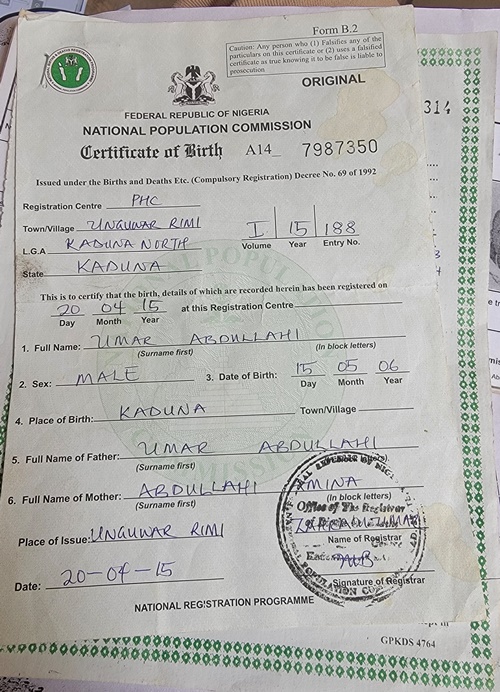 Form B.2
Caution: Any person who (1) Falsifies any of the
particulars on this certificate or (2) uses a falsified
certificate as true knowing it to be false is liable to
prosecution
ORIGINAL
FEDERAL REPUBLIC OF NIGERIA
NATIONAL POPULATION COMMISSION
Certificate of Birth A14_ 7987350
314
Issued under the Births and Deaths Etc. (Compulsory Registration) Decree No. 69 of 1992
Registration Centre PHC
Town/Village UNGUWAR RIMI
L.G.A KADUNA NORTH
State KADUNA
I 15 188
Volume Year Entry No.
This is to certify that the birth, details of which are recorded herein has been registered on
20 04 15 at this Registration Centre
Day Month Year
1. Full Name: UMAR ABDULLAHI
(Surname first) (In block letters)
2. Sex: MALE 3. Date of Birth: 15 05 06
Day Month Year
4. Place of Birth: KADUNA Town/Village
5. Full Name of Father: UMAR ABDULLAHI
(Surname first)
6. Full Name of Mother: ABDULLAHI MINA
(Surname first) (In block letters)
Place of Issue: UNGUWAR RIMI
Office of The Registrar
Name of Registrar
Date: 20-04-15
Signature of Registrar
NATIONAL POPULATION
NATIONAL REGISTRATION PROGRAMME
GPKDS 4764